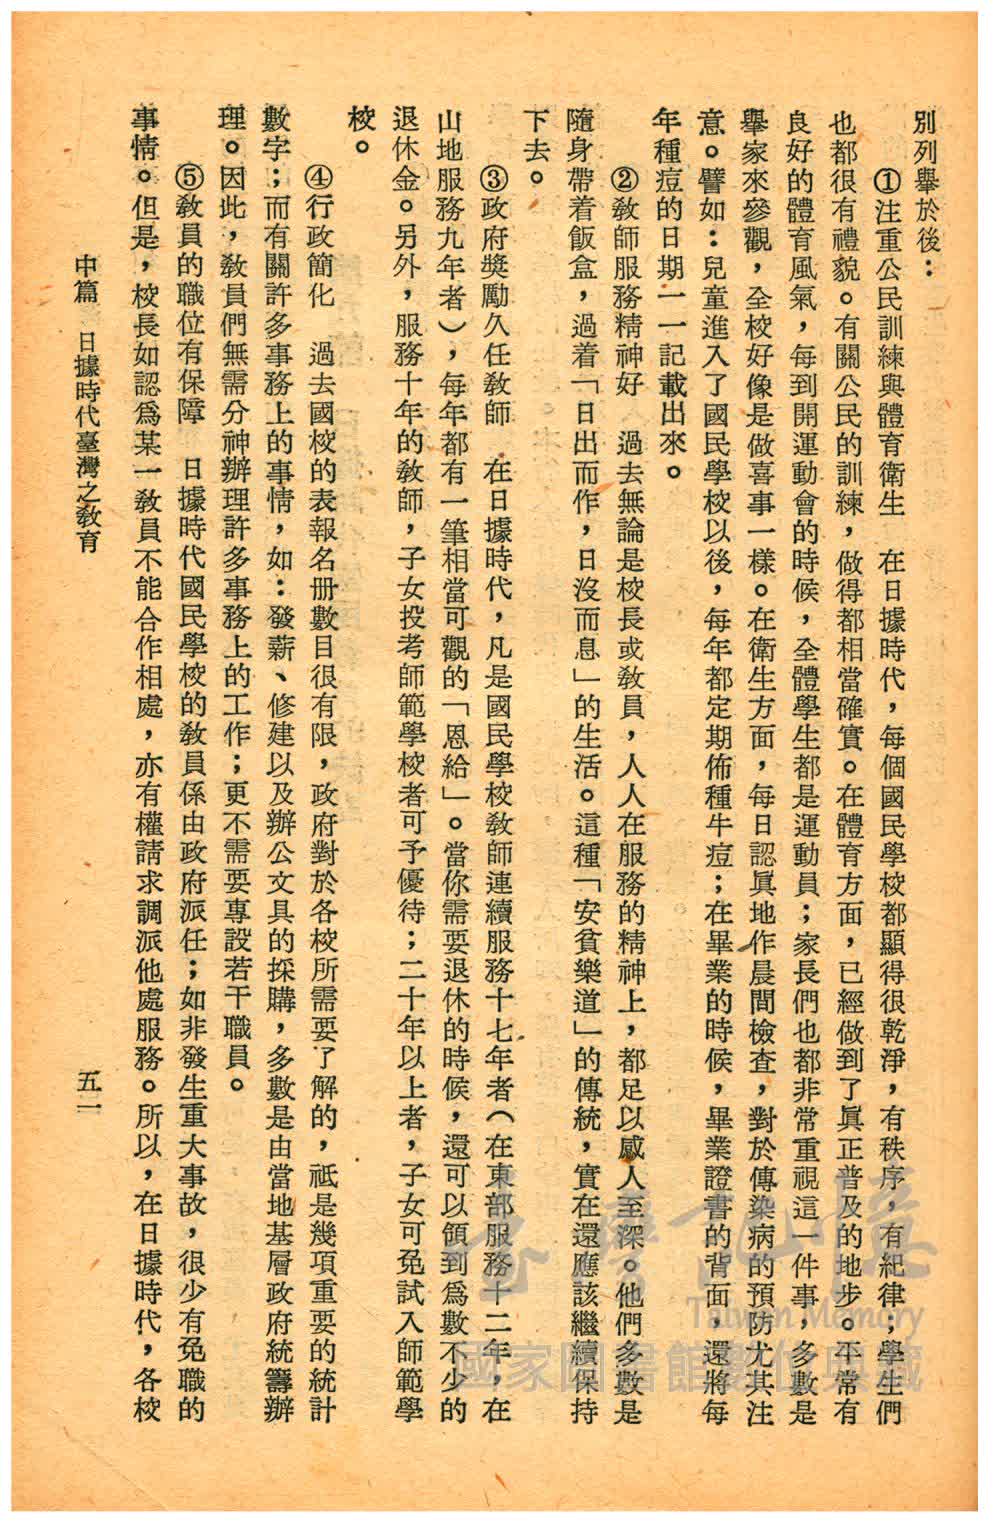 別列舉於後：
①注重公民訓練與體育衛生　在日據時代，每個國民學校都顯得很乾淨，有秩序，有紀律；學生們
也都很有禮貌。有關公民的訓練，做得都相當確實。在體育方面，已經做到了眞正普及的地步。平常有
良好的體育風氣，每到開運動會的時候，全體學生都是運動員；家長們也都非常重視這一件事，多數是
舉家來參觀，全校好像是做喜事一樣。在衛生方面，每日認眞地作晨間檢查，對於傳染病的預防尤其注
意。譬如：兒童進入了國民學校以後，每年都定期佈種牛痘；在畢業的時候，畢業證書的背面，還將每
年種痘的日期一一記載出來。
②敎師服務精神好　過去無論是校長或敎員，人人在服務的精神上，都足以感人至深。他們多數是
隨身帶着飯盒，過着「日出而作，日沒而息」的生活。這種「安貧樂道」的傳統，實在還應該繼續保持
下去。
③政府獎勵久任敎師　在日據時代，凡是國民學校敎師連續服務十七年者（在東部服務十二年，在
山地服務九年者），每年都有一筆相當可觀的「恩給」。當你需要退休的時候，還可以領到爲數不少的
退休金。另外，服務十年的敎師，子女投考師範學校者可予優待；二十年以上者，子女可免試入師範學
校。
④行政簡化　過去國校的表報名册數目很有限，政府對於各校所需要了解的，祗是幾項重要的統計
數字；而有關許多事務上的事情，如：發薪、修建以及辦公文具的採購，多數是由當地基層政府統籌辦
理。因此，敎員們無需分神辦理許多事務上的工作；更不需要專設若干職員。
⑤敎員的職位有保障　日據時代國民學校的敎員係由政府派任；如非發生重大事故，很少有免職的
事情。但是，校長如認爲某一敎員不能合作相處，亦有權請求調派他處服務。所以，在日據時代，各校
中篇　日據時代臺灣之敎育　五一
臺灣記憶
Taiwan Memory
國家圖書館數位典藏